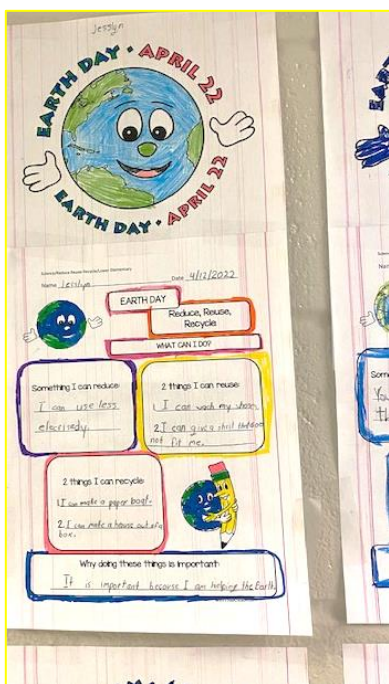 Jesslyn
EARTH DAY • APRIL 22
EARTH DAY • APRIL 22
Science/Reduce Reuse Recycle/Lower Elementary
Name Jesslyn Date 4/12/2022
EARTH DAY
Reduce, Reuse,
Recycle
WHAT CAN I DO?
Something I can reduce:
I can use less
electricedy.
2 things I can reuse:
1. I can wach my
2. I can give a shirt
not fit me.
2 things I can recycle:
1. I can make a paper boat.
2. I can make a house out of a
box.
Why doing these things is important:
It is important because I am helping the Earth.